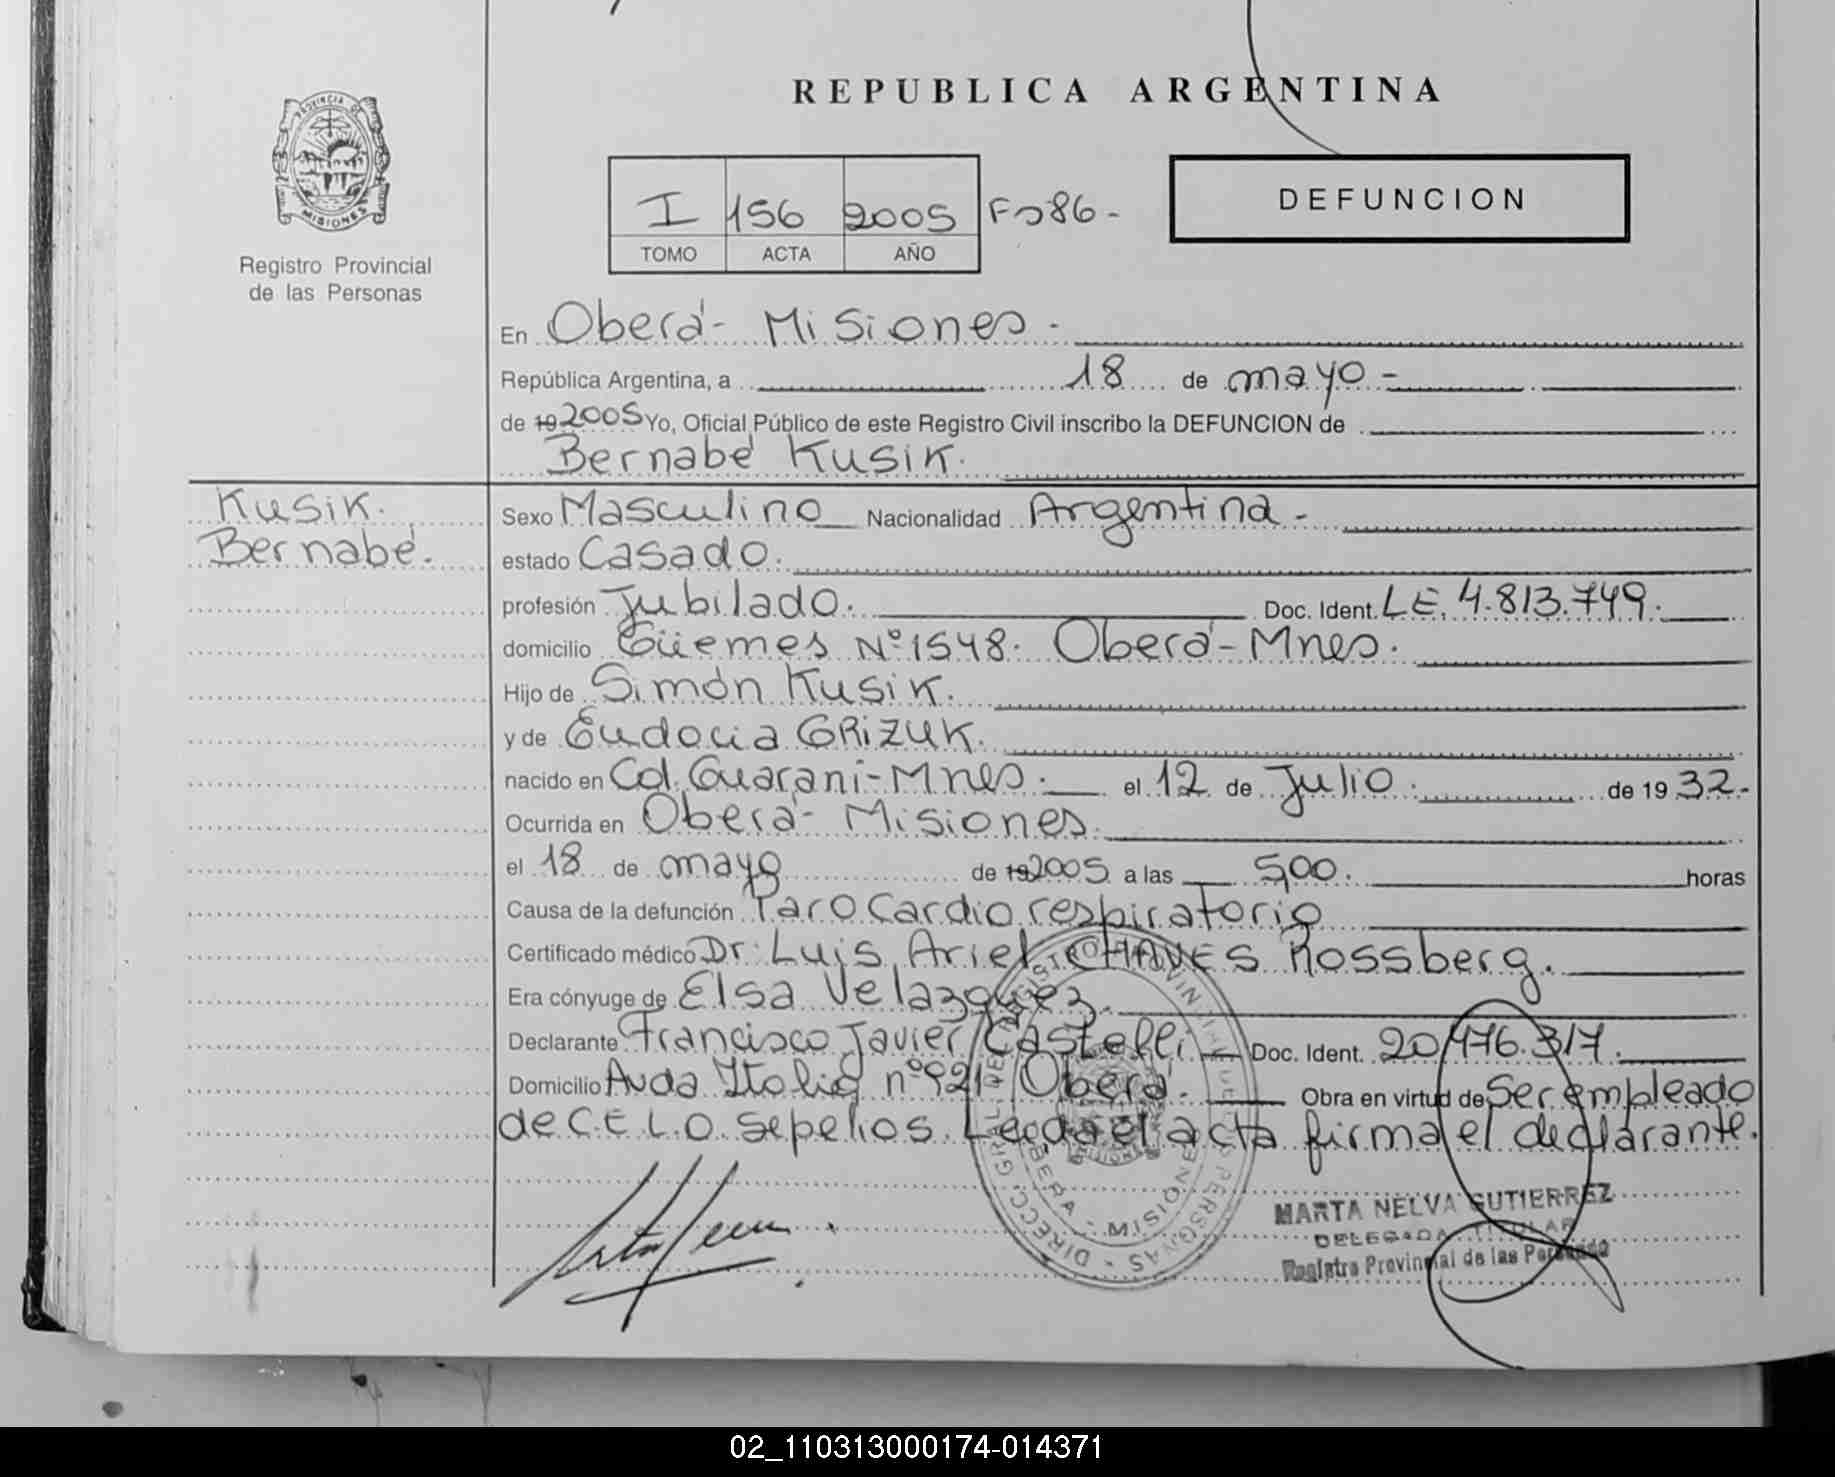 REPUBLICA ARGENTINA
PROVINCIA DE
MISIONES
Registro Provincial
de las Personas
I 156 2005 Fº 86-
TOMO ACTA AÑO
DEFUNCION
En Oberá- Misiones.
República Argentina, a 18 de mayo-
de 19 2005 Yo, Oficial Público de este Registro Civil inscribo la DEFUNCION de
Bernabé Kusik.
Kusik.
Bernabé.
Sexo Masculino Nacionalidad Argentina-
estado Casado.
profesión Jubilado. Doc. Ident. LE. 4.813.749.
domicilio Güemes Nº 1548. Oberá-Mnes.
Hijo de Simón Kusik.
y de Eudocia GRIZUK.
nacido en Col. Guaraní-Mnes. el 12 de Julio. de 19 32.-
Ocurrida en Oberá- Misiones.
el 18 de mayo de 19 2005 a las 5,00. horas
Causa de la defunción Paro Cardio respiratorio
Certificado médico Dr. Luis Ariel CHAVES Rossberg.
Era cónyuge de Elsa Velazquez.
Declarante Francisco Javier Castelli Doc. Ident. 20.476.317.
Domicilio Avda Italia nº 921 Oberá. Obra en virtud de Ser empleado
de C.E.L.O. sepelios. Leída el acta firma el declarante.
DIRECC. GRAL. DEL REGISTRO PROVINCIAL DE LAS PERSONAS
OBERA - MISIONES
MARTA NELVA GUTIERREZ
DELEGADA TITULAR
Registro Provincial de las Personas
02_110313000174-014371